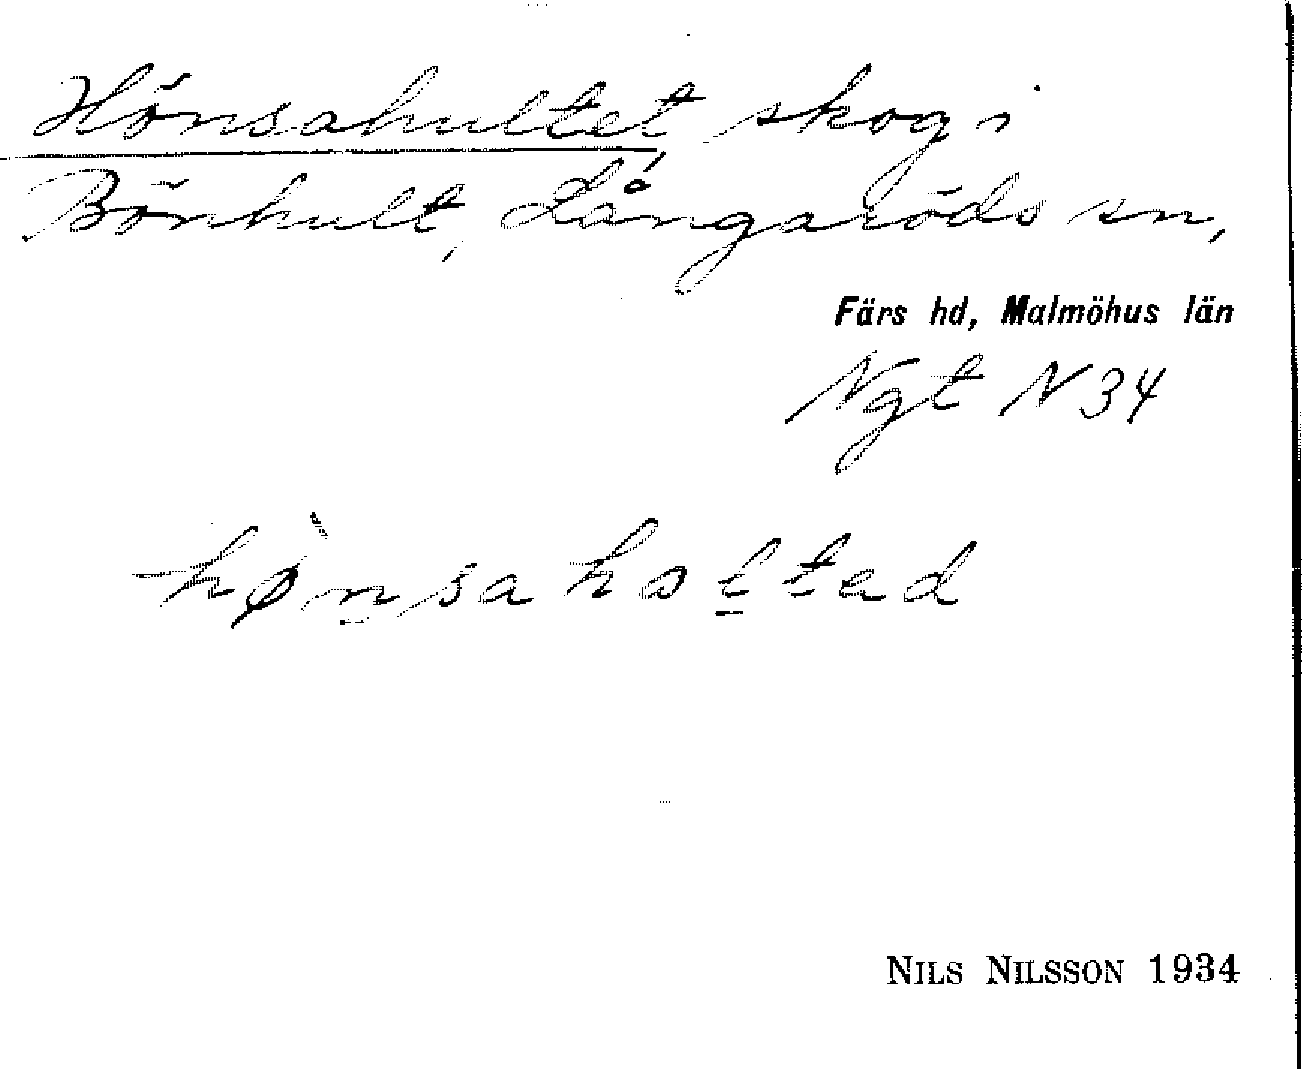 Hönsahultet, skog i
Bönhult, Långaröds sn,
Färs hd, Malmöhus län
Ngt N 34
hø̀n̠sahol̠tad
NILS NILSSON 1934